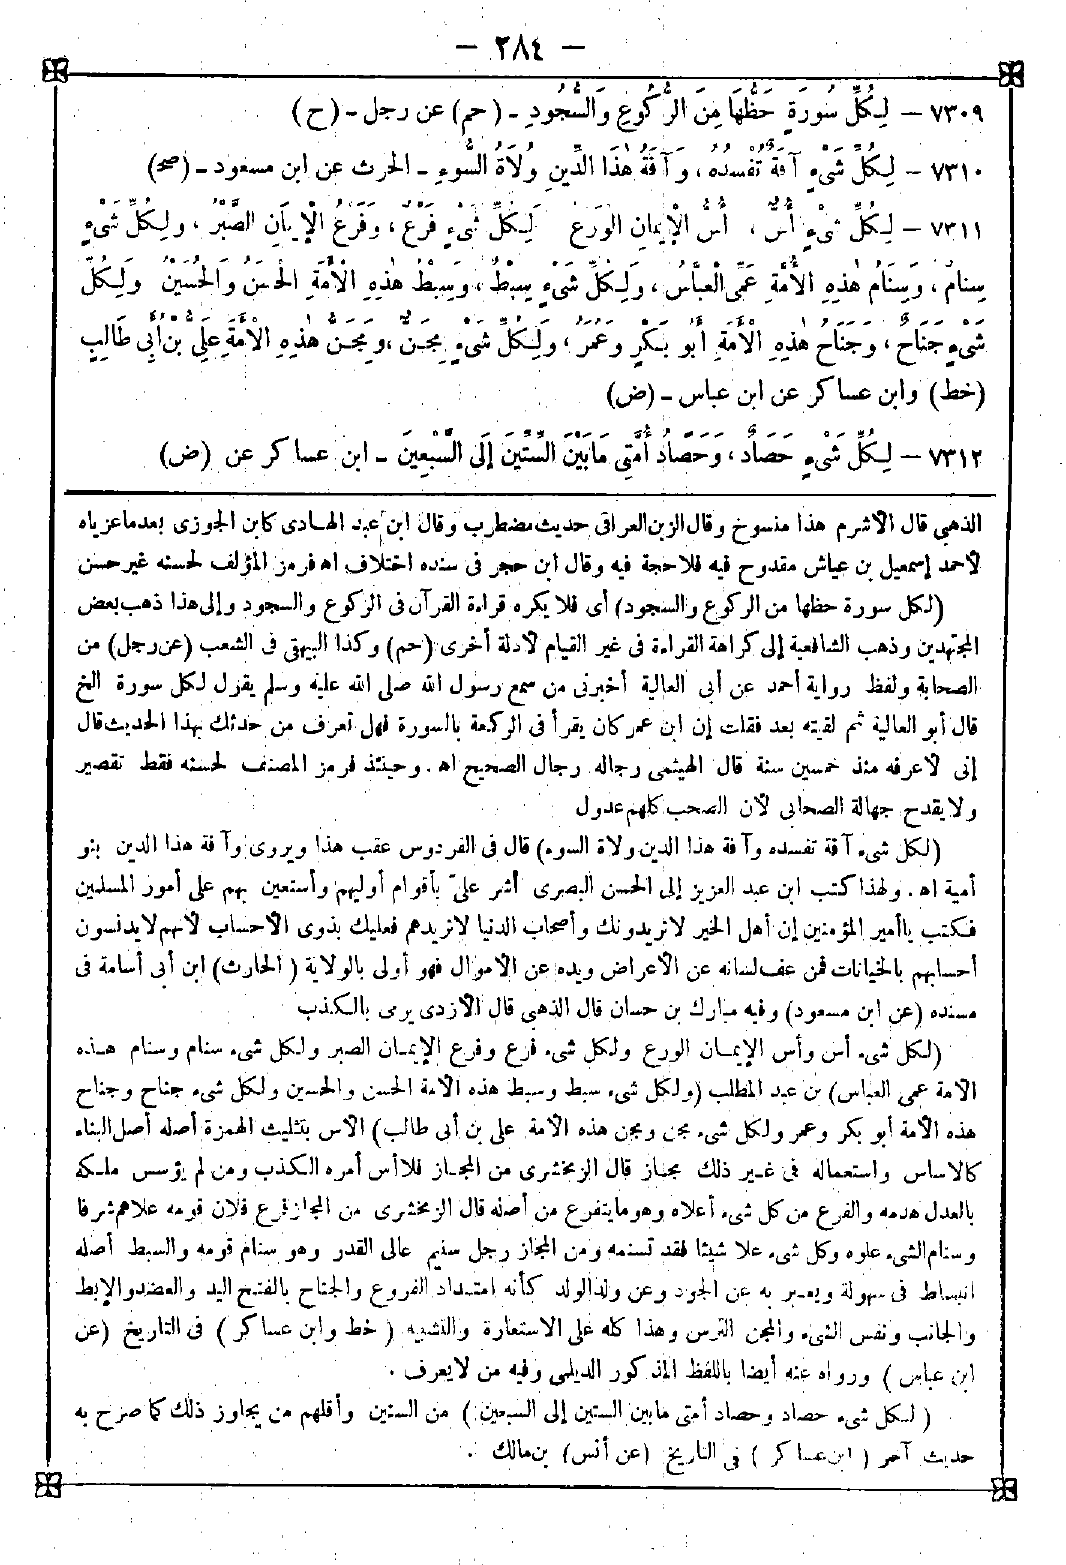 — ٢٨٤ —
٧٣٠٩ — لِكُلِّ سُورَةٍ حَظُّهَا مِنَ الرُّكُوعِ وَالسُّجُودِ - (حم) عن رجل - (ح)
٧٣١٠ — لِكُلِّ شَيْءٍ آفَةٌ تُفْسِدُهُ، وَآفَةُ هٰذَا الدِّينِ وُلَاةُ السُّوءِ - الحرث عن ابن مسعود - (صح)
٧٣١١ — لِكُلِّ شَيْءٍ أُسٌّ، أُسُّ الْإِيمَانِ الوَرَعُ لِكُلِّ شَيْءٍ فَرْعٌ، وَفَرْعُ الْإِيمَانِ الصَّبْرُ، وَلِكُلِّ شَيْءٍ
سِنَامٌ، وَسِنَامُ هٰذِهِ الْأُمَّةِ عَمِّي الْعَبَّاسُ، وَلِكُلِّ شَيْءٍ سِبْطٌ، وَسِبْطُ هٰذِهِ الْأُمَّةِ الْحَسَنُ وَالْحُسَيْنُ وَلِكُلِّ
شَيْءٍ جَنَاحٌ، وَجَنَاحُ هٰذِهِ الْأُمَّةِ أَبُو بَكْرٍ وَعُمَرُ، وَلِكُلِّ شَيْءٍ مِجَنٌّ، وَمِجَنُّ هٰذِهِ الْأُمَّةِ عَلِيُّ بْنُ أَبِي طَالِبٍ
(خط) وابن عساكر عن ابن عباس - (ض)
٧٣١٢ — لِكُلِّ شَيْءٍ حَصَادٌ، وَحَصَادُ أُمَّتِي مَا بَيْنَ السِّتِّينَ إِلَى السَّبْعِينَ - ابن عساكر عن (ض)
الذهبي قال الأشرم هذا منسوخ وقال الزين العراقي حديث مضطرب وقال ابن عبد الهادي كابن الجوزي بعد ما عزياه
لأحمد إسمعيل بن عياش مقدوح فيه فلا حجة فيه وقال ابن حجر في سنده اختلاف اه فرمز المؤلف لحسنه غير حسن
(لكل سورة حظها من الركوع والسجود) أى فلا يكره قراءة القرآن فى الركوع والسجود وإلى هذا ذهب بعض
المجتهدين وذهب الشافعية إلى كراهة القراءة فى غير القيام لأدلة أخرى (حم) وكذا البيهقى فى الشعب (عن رجل) من
الصحابة ولفظ رواية أحمد عن أبى العالية أخبرنى من سمع رسول الله صلى الله عليه وسلم يقول لكل سورة الخ
قال أبو العالية ثم لقيته بعد فقلت إن ابن عمر كان يقرأ فى الركعة بالسورة فهل تعرف من حدثك بهذا الحديث قال
إنى لأعرفه منذ خمسين سنة قال الهيثمى رجاله رجال الصحيح اه. وحينئذ فرمز المصنف لحسنه فقط تقصير
ولا يقدح جهالة الصحابى لأن الصحب كلهم عدول
(لكل شىء آفة تفسده وآفة هذا الدين ولاة السوء) قال فى الفردوس عقب هذا ويروى وآفة هذا الدين بنو
أمية اه. ولهذا كتب ابن عبد العزيز إلى الحسن البصرى أشر علىّ بأقوام أوليهم وأستعين بهم على أمور المسلمين
فكتب يا أمير المؤمنين إن أهل الخير لا تريدونك وأصحاب الدنيا لا تريدهم فعليك بذوى الأحساب لأنهم لا يدنسون
أحسابهم بالخيانات فمن عف لسانه عن الأعراض ويده عن الأموال فهو أولى بالولاية (الحارث) ابن أبى أسامة فى
مسنده (عن ابن مسعود) وفيه مبارك بن حسان قال الذهبى قال الأزدى يرمى بالكذب
(لكل شىء أس وأس الإيمان الورع ولكل شىء فرع وفرع الإيمان الصبر ولكل شىء سنام وسنام هذه
الأمة عمى العباس) بن عبد المطلب (ولكل شىء سبط وسبط هذه الأمة الحسن والحسين ولكل شىء جناح وجناح
هذه الأمة أبو بكر وعمر ولكل شىء مجن ومجن هذه الأمة على بن أبى طالب) الأس بتثليث الهمزة أصله أصل البناء
كالأساس واستعماله فى غير ذلك مجاز قال الزمخشرى من المجاز فلا أس أمره الكذب ومن لم يؤسس ملكه
بالعدل هدمه والفرع من كل شىء أعلاه وهو ما يتفرع من أصله قال الزمخشرى من المجاز فرع فلان قومه علاهم شرفا
وسنام الشىء علوه وكل شىء علا شيئا فقد تسنمه ومن المجاز رجل سنيم عالى القدر وهو سنام قومه والسبط أصله
انبساط فى سهولة ويعبر به عن الجود وعن ولد الولد كأنه امتداد الفروع والجناح بالفتح اليد والعضد والإبط
والجانب ونفس الشىء والمجن الترس وهذا كله على الاستعارة والتشبيه (خط وابن عساكر) فى التاريخ (عن
ابن عباس) ورواه عنه أيضا باللفظ المذكور الديلمى وفيه من لا يعرف.
(لكل شىء حصاد وحصاد أمتى ما بين الستين إلى السبعين) من السنين وأقلهم من يجاوز ذلك كما صرح به
حديث آخر (ابن عساكر) فى التاريخ (عن أنس) بن مالك.